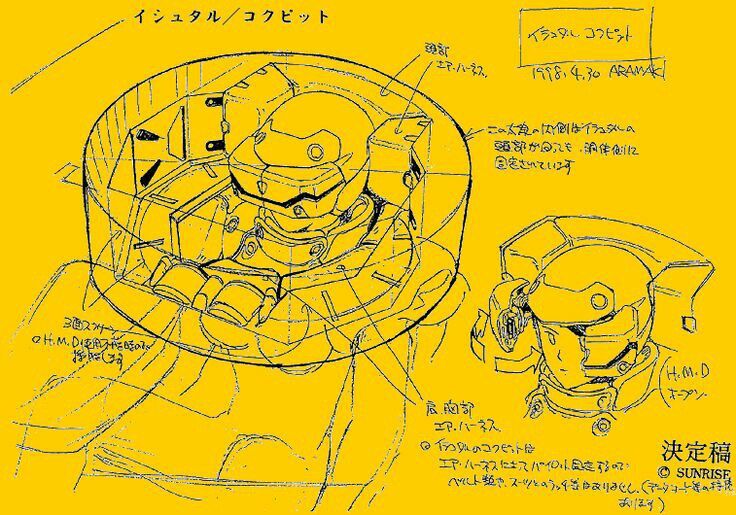 イシュタル／コクピット
イシュタル コクピット
1998.4.30 ARAMAKI
頭部
エア・ハーネス
この太線の内側はイシュタルの
頭部が回っても、胴体側に
固定されています
3面スクリーン
H.M.D
H.M.D
オープン
肩、胸部
エア・ハーネス
◎イシュタルのコクピットは
エア・ハーネスによってパイロットを固定するので
ベルト類や、スーツとのラッチ等はありません。(データコード等の接続
あります)
決定稿
© SUNRISE